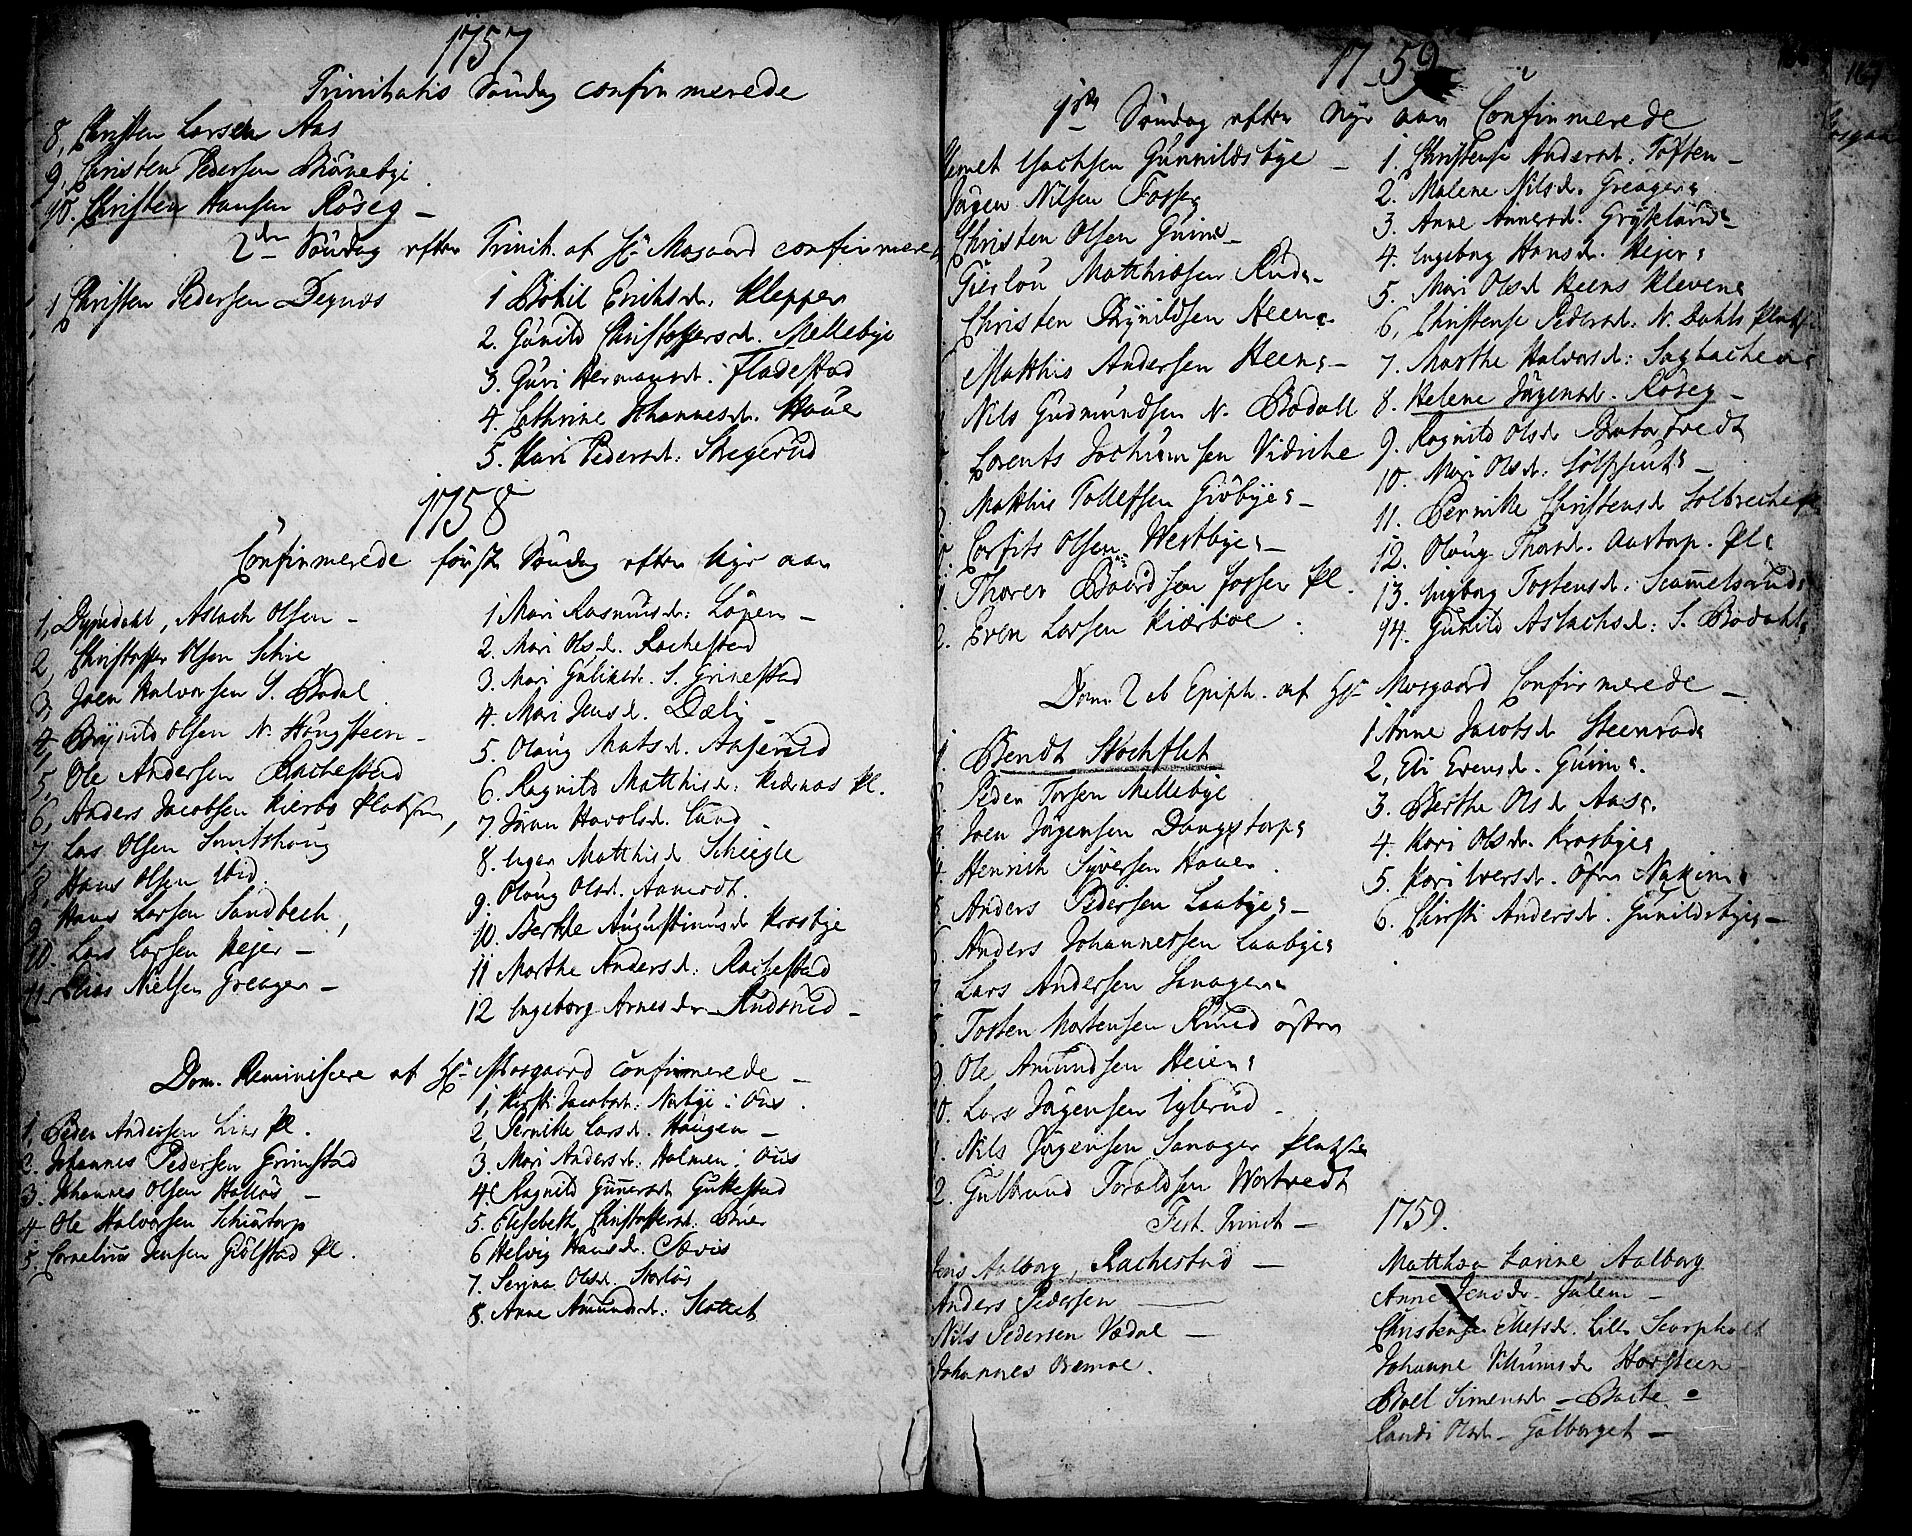 1757
Trinitatis Søndag confirmerede
8, Christen Larsen Aas
9, Christen Pedersen
10. Christen Hansen Røseg –
2den Søndag efter Trinit. af Hr. Mosgaard confirmere
1 Christen Pedersen Degnæs
1 Bohil Erichsd. Klepper
2. Gunild Christophersd. Mellebye
3. Guri Hermansd. Fladestad
4. Cathrine Johannesd. Houer
5. Kari Pedersd. Skregerud
1758
Confirmerede første Søndag efter Nyt aar
1, Dyndahl, Aslach Olsen –
2, Christopher Olsen Schie
3, Joen Halvorsen S. Bødal
4, Brynild Olsen N. Hougsteen –
5, Ole Andersen Rachestad
6, Anders Jacobsen Kierbo Platsen,
7, Lars Olsen
8, Hans Olsen Ibid.
9 Hans Larsen Sandbech,
10. Lars Larsen Hejer –
11. Claus Nielsen Greager –
1 Mari Rasmusd: Løpen –
2. Mari Olsd. Rachestad
3. Mari S. Grinestad
4. Mari Jensd. Dæli –
5. Oloug Matsd. Aaserud
6. Ragnild Matthisd. Pl.
7 Joran Havolsd. Lund
8. Inger Matthisd. Schiegle
9. Oloug Olsd. Aamodt.
10. Berthe Augustinusd. Krosbye
11 Marthe Andersd: Rachestad
12 Ingeborg Arnesdr. Rudsrud –
Dom. Reminiscere af Hr. Mosgaard confirmerede –
1, Peder Andersen Lier Pl.
2. Johannes Pedersen Grinstad
3. Johannes Olsen Holtøs –
4. Ole Halvorsen Schiøtorp
5. Cornelius Jensen Giølstad Pl.
1, Kirsti Jacobsd: Norbye i Ous
2, Pernille Larsd. Hougen –
3. Mari Andersd: Holmen i Ous
4. Ragnild Gunersd. Guttestad
5. Elisebeth Christophersd. Bøer
6 Helvig Hansd. Sævis
7. Serina Olsd. Storløs
8. Anne Amundsd: Slottet
1759
1ste Søndag efter Nyt aar Confirmerede
Isachsen Gunnildsbye –
Jøgen Nilsen Fosser
Christen Olsen Guim –
Gierlou Matthisen Ruds –
Christen Brynildsen Heen
Matthis Andersen Heens –
Nils Gudmundsen N. Bødahl
Lorents Jochumsen Vidiche
Matthis Tollefsen Giøbyes –
Corfits Olsen Westbyes –
Thorer Boordsen Fosser Pl.
2. Even Larsen Kiærboe
1. Christense Andersd: Toften –
2. Malene Nilsd. Greagers
3. Anne Annersd. Grøtelands
4. Ingeborg Hansd. Hejers
5. Mari Olsd. Heens Klevens
6, Christense Pedersd: N. Dahls Platse
7. Marthe Halvorsd: Sagbachens
8. Helene Jøgensd. Røseg –
9. Ragnild Olsd.
10. Mari Olsd:
11. Pernille Christensd. Solbreche
12. Oloug Thorsd. Aastorp. Pl.
13. Ingborg Tostensd: Skamelsruds
14. Gunild Aslachsd: S. Bødahls
Dom. 2 ab Epiph. af Hr. Mosgaard Confirmerede –
1. Bendt Stochflet
Peder Torsen Mellebye
3. Joen Jøgensen Dongstorps
4. Henrich Syversen Houer
5. Anders Pedersen Laabyes –
6. Anders Johannessen Laabyes
7. Lars Andersen Sonagers
8. Tosten Mortensen Ruud østre
9. Ole Amundsen Heiens
10. Lars Jøgensen Iglerud –
1. Nils Jøgensen Sonager Platse
2. Gulbrand Toraldsen Wortvedt
1 Anne Jacobsd. Steensruds
2, Eli Evensd. Guims.
3. Berthe Olsd. Aas.
4. Kari Olsd. Krosbyes
5. Kari Iversd. Øfre Nakims
6. Chirsti Andersd. Gunildsbyes –
Fest. Trinit – 1759.
Jens Aalborg, Rachestad –
Anders Pedersen –
Nils Pedersen Vædal –
Johannes Bemoe.
Matthea Karine Aalborg
Anne Jensdr. Julem –
Christense Elefsdr. Lille Scorpholt
Johanne Villumsdr. Horsteen –
Boel Simensdr – Bache –
Randi Olsd – Golborget –